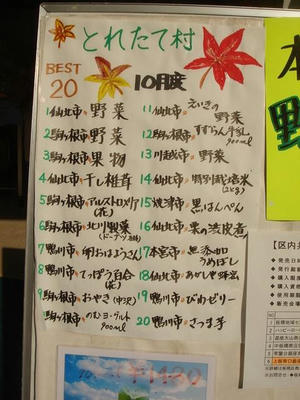 とれたて村
BEST
20
10月度
1 仙北市・野菜
2 駒ヶ根市・野菜
3 駒ヶ根市・果物
4 仙北市・干し椎茸
5 駒ヶ根市・アルストロメリア
(花)
6 駒ヶ根市・北川製菓
(ドーナツ３種)
7 鴨川市・卵(おはようさん)
8 鴨川市・てっぽう百合
(花)
9 駒ヶ根市・おやき(中沢)
駒ヶ根市・のむヨーグルト
900ml
11 仙北市・えいきの
野菜
12 駒ヶ根市・すずらん牛乳
900ml
13 川越市・野菜
14 仙北市・特別栽培米
15 焼津市・黒はんぺん
16 仙北市・栗の渋皮煮
17 本宮市・無添加
うめぼし
18 仙北市・あかしや蜂蜜
19 鴨川市・びわゼリー
20 鴨川市・さつま芋
本
【区内共